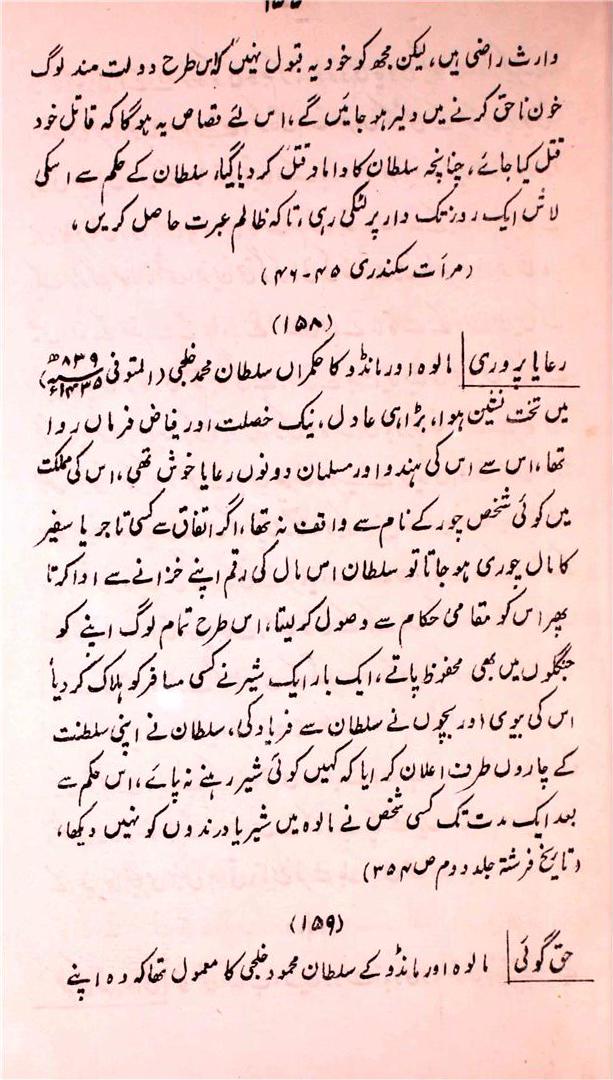 وارث راضی ہیں، لیکن مجھ کو خود یہ قبول نہیں کہ اس طرح دولت مند لوگ
خون ناحق کرنے میں دلیر ہو جائیں گے، اس لئے قصاص یہ ہوگا کہ قاتل خود
قتل کیا جائے، چنانچہ سلطان کا داماد قتل کر دیا گیا، سلطان کے حکم سے اسکی
لاش ایک روز تک دار پر لٹکی رہی، تاکہ ظالم عبرت حاصل کریں،
(مرأت سکندری ۴۵-۴۶)
(۱۵۸)
رعایا پروری مالوہ اور مانڈو کا حکمراں سلطان محمد خلجی (المتوفی ۸۳۹ھ ۱۴۳۵ء)
میں تخت نشین ہوا، بڑا ہی عادل، نیک خصلت اور فیاض فرماں روا
تھا، اس سے اس کی ہندو اور مسلمان دونوں رعایا خوش تھی، اس کی مملکت
میں کوئی شخص چور کے نام سے واقف نہ تھا، اگر اتفاق سے کسی تاجر یا سفیر
کا مال چوری ہو جاتا تو سلطان اس مال کی رقم اپنے خزانے سے ادا کرتا
پھر اس کو مقامی حکام سے وصول کر لیتا، اس طرح تمام لوگ اپنے کو
جنگلوں میں بھی محفوظ پاتے، ایک بار ایک شیر نے کسی مسافر کو ہلاک کر دیا
اس کی بیوی اور بچوں نے سلطان سے فریاد کی، سلطان نے اپنی سلطنت
کے چاروں طرف اعلان کرایا کہ کہیں کوئی شیر رہنے نہ پائے، اس حکم سے
بعد ایک مدت تک کسی شخص نے مالوہ میں شیر یا درندوں کو نہیں دیکھا،
(تاریخ فرشتہ جلد دوم ص ۳۵۴)
(۱۵۹)
حق گوئی مالوہ اور مانڈو کے سلطان محمود خلجی کا معمول تھا کہ وہ اپنے